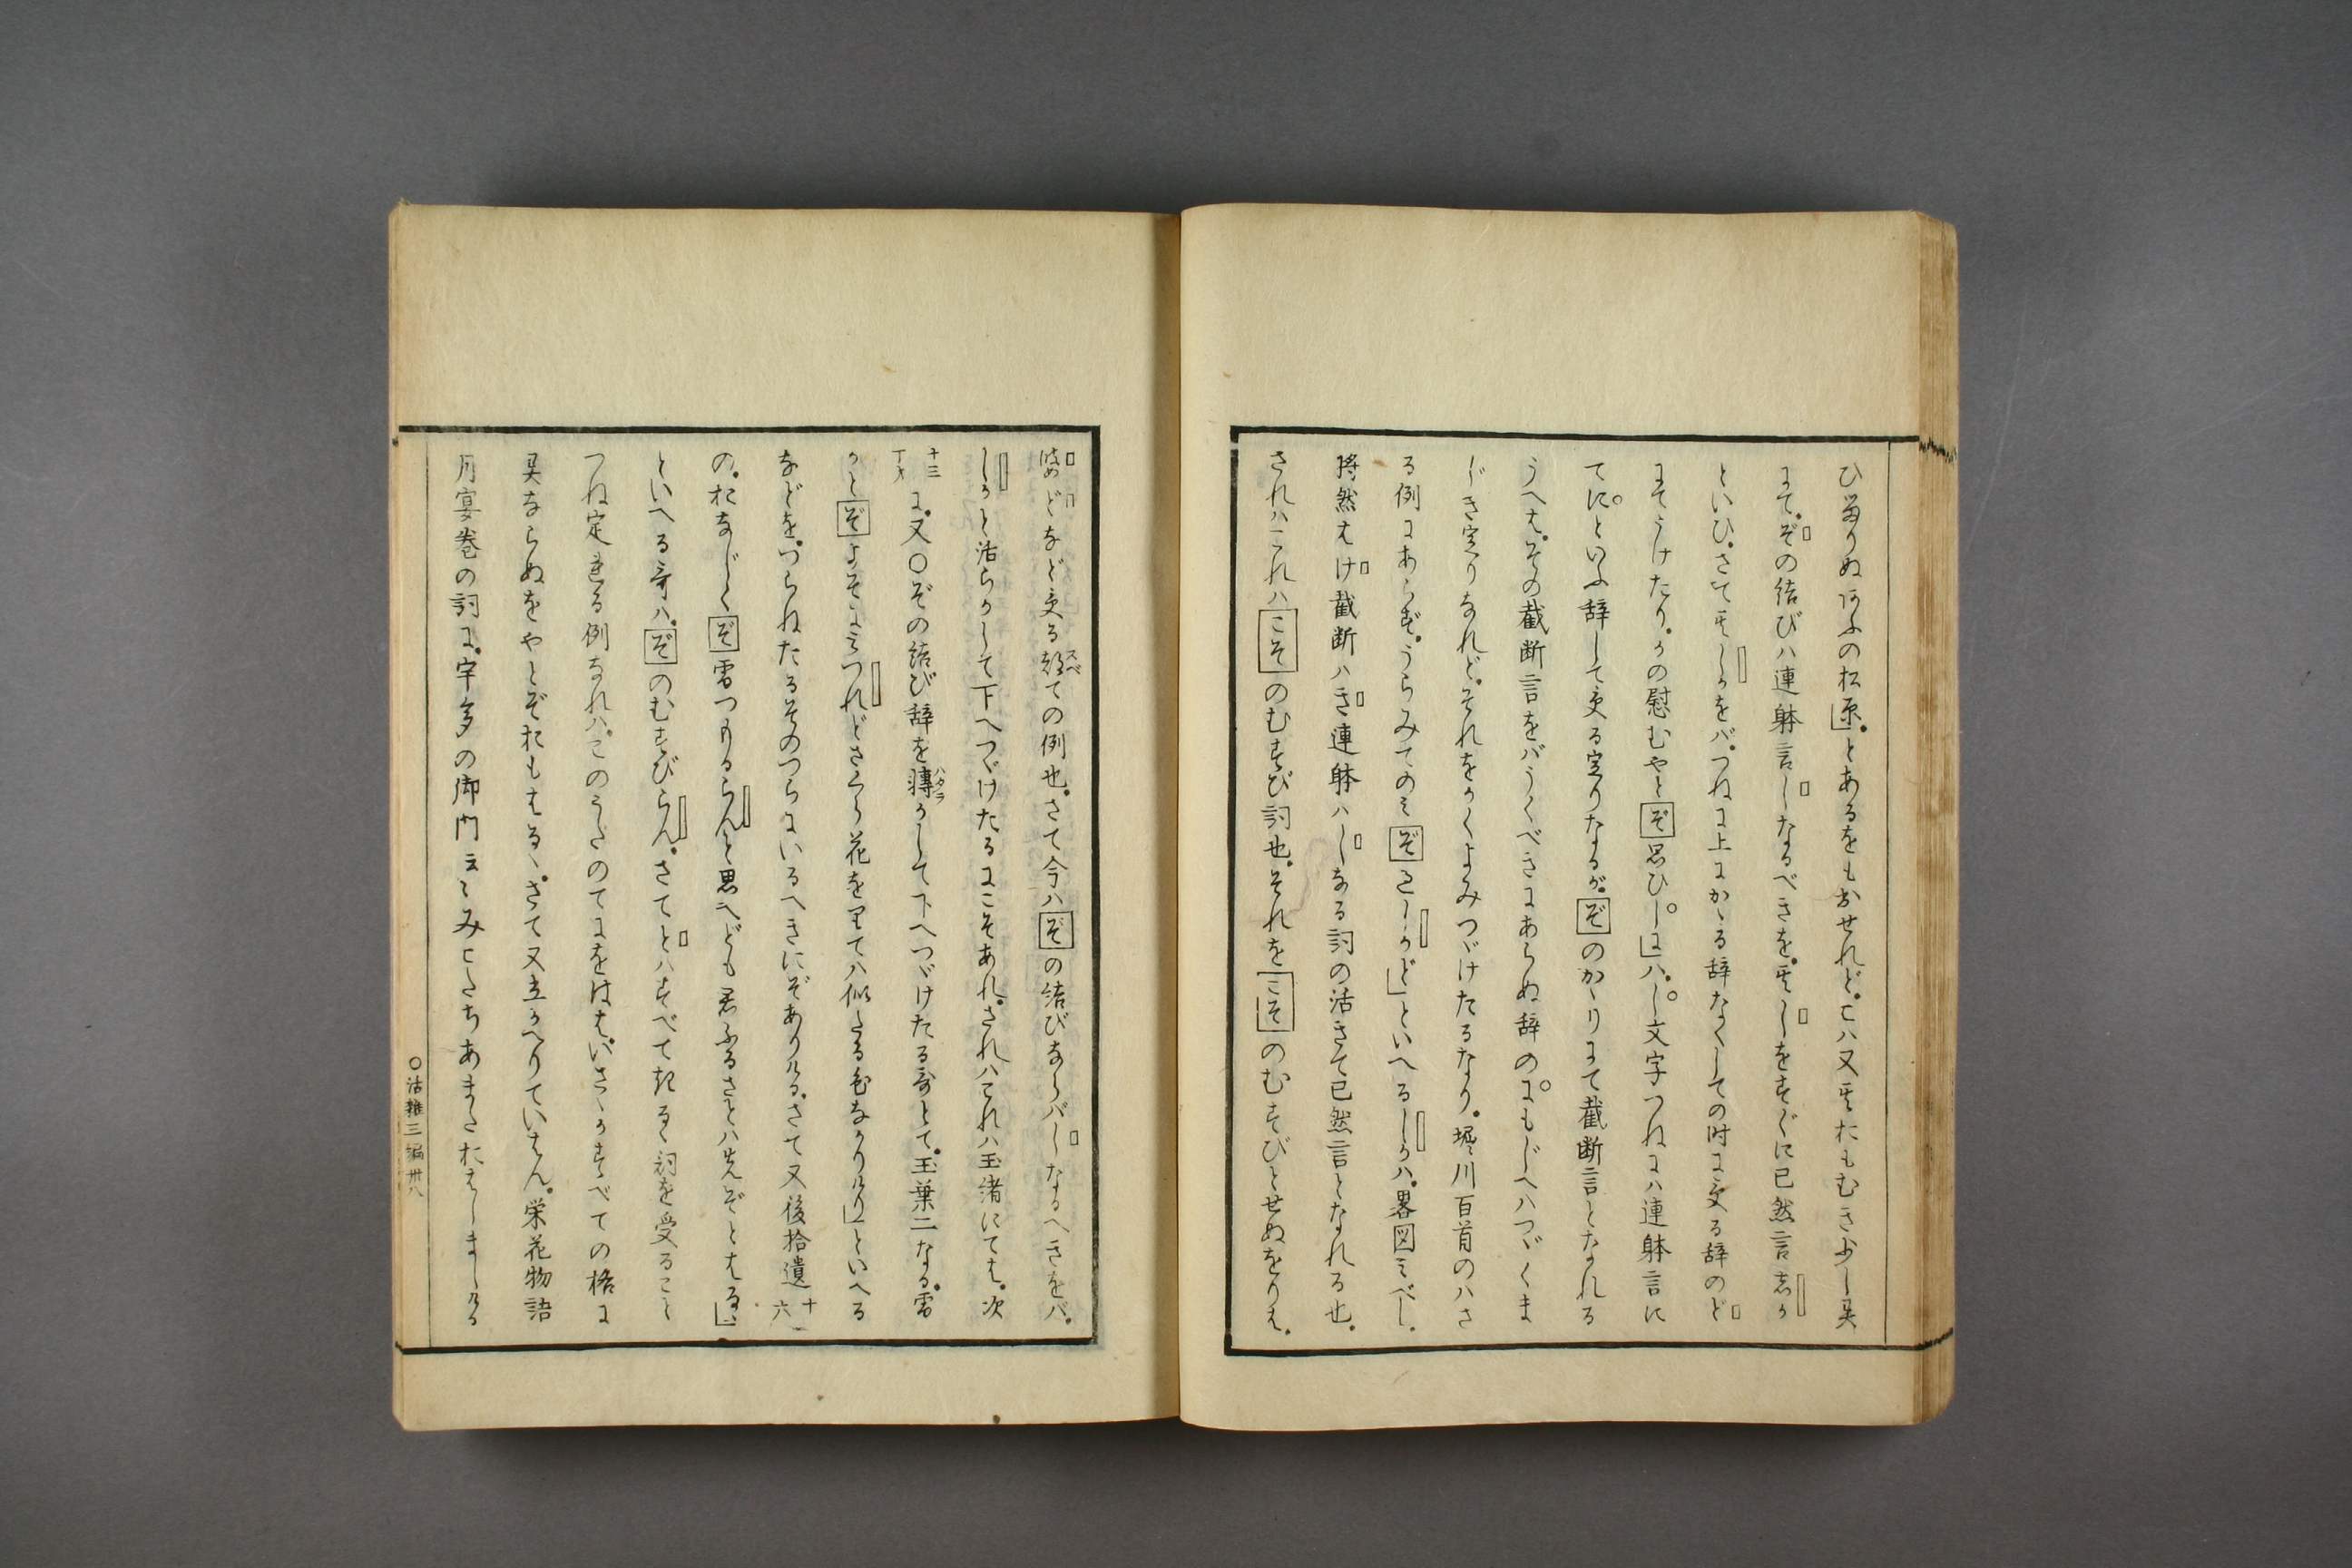 ひ蕃りぬ 心の松原」とあるをもおせれど。こハ又其おもむき少し異
にて。ぞの結びハ連躰言しなるべきを。其しをすぐに已然言志か
といひ。さて其しかをバ。つねに上にかゝる辞なくしての時に受る辞のど
にてうけたり。かの慰むやとぞ思ひし に」ハ。し文字つねにハ連躰言に
てに。といふ辞して受る定りなるが。ぞのかゝりにて截断言となれる
うへは。その截断言をバうくべきにあらぬ辞の。にもじへハつゞくま
じき定りなれど。それをかくよみつゞけたるなり。堀川百首のハさ
る例にあらず。うらみてのミぞこしかど」といへるしかハ。畧図ミべし。
将然はけ截断ハき連躰ハしなる詞の活きて已然言となれる也。
されハこれハこそのむすび詞也。それをこそのむすびとせぬをりは。
どなど受る都ての例也。さて今ハぞの結びならバしなるへきをバ。
しかと活らかして下へつゞけたるにこそあれ。されハこれハ玉緒にては。次
十三丁オ に。又〇ぞの結び辞を轉かして下へつゞけたる哥とて。玉葉二なる。雪
かとぞよそにミつれどさくら花を里てハ似たる色なかりけり」といへる
などを。つらねたるそのつらにいるへきにぞありける。さて又後拾遺十六
の。おなじくぞ雪つもるらんと思へども君ふるさとハ先ぞとはるゝ」
といへる哥ハ。ぞのむすびらん。さてとハすべて起るゝ詞を受ること
つね定まれる例なれハ。このうたのてにをはは。いさゝかすべての格に
異ならぬをやとぞおもはるゝ。さて又立かへりていはん。栄花物語
月宴巻の詞に。宇多の御門云ゝみこたちあまたおはしましける
〇活雑三編卅八